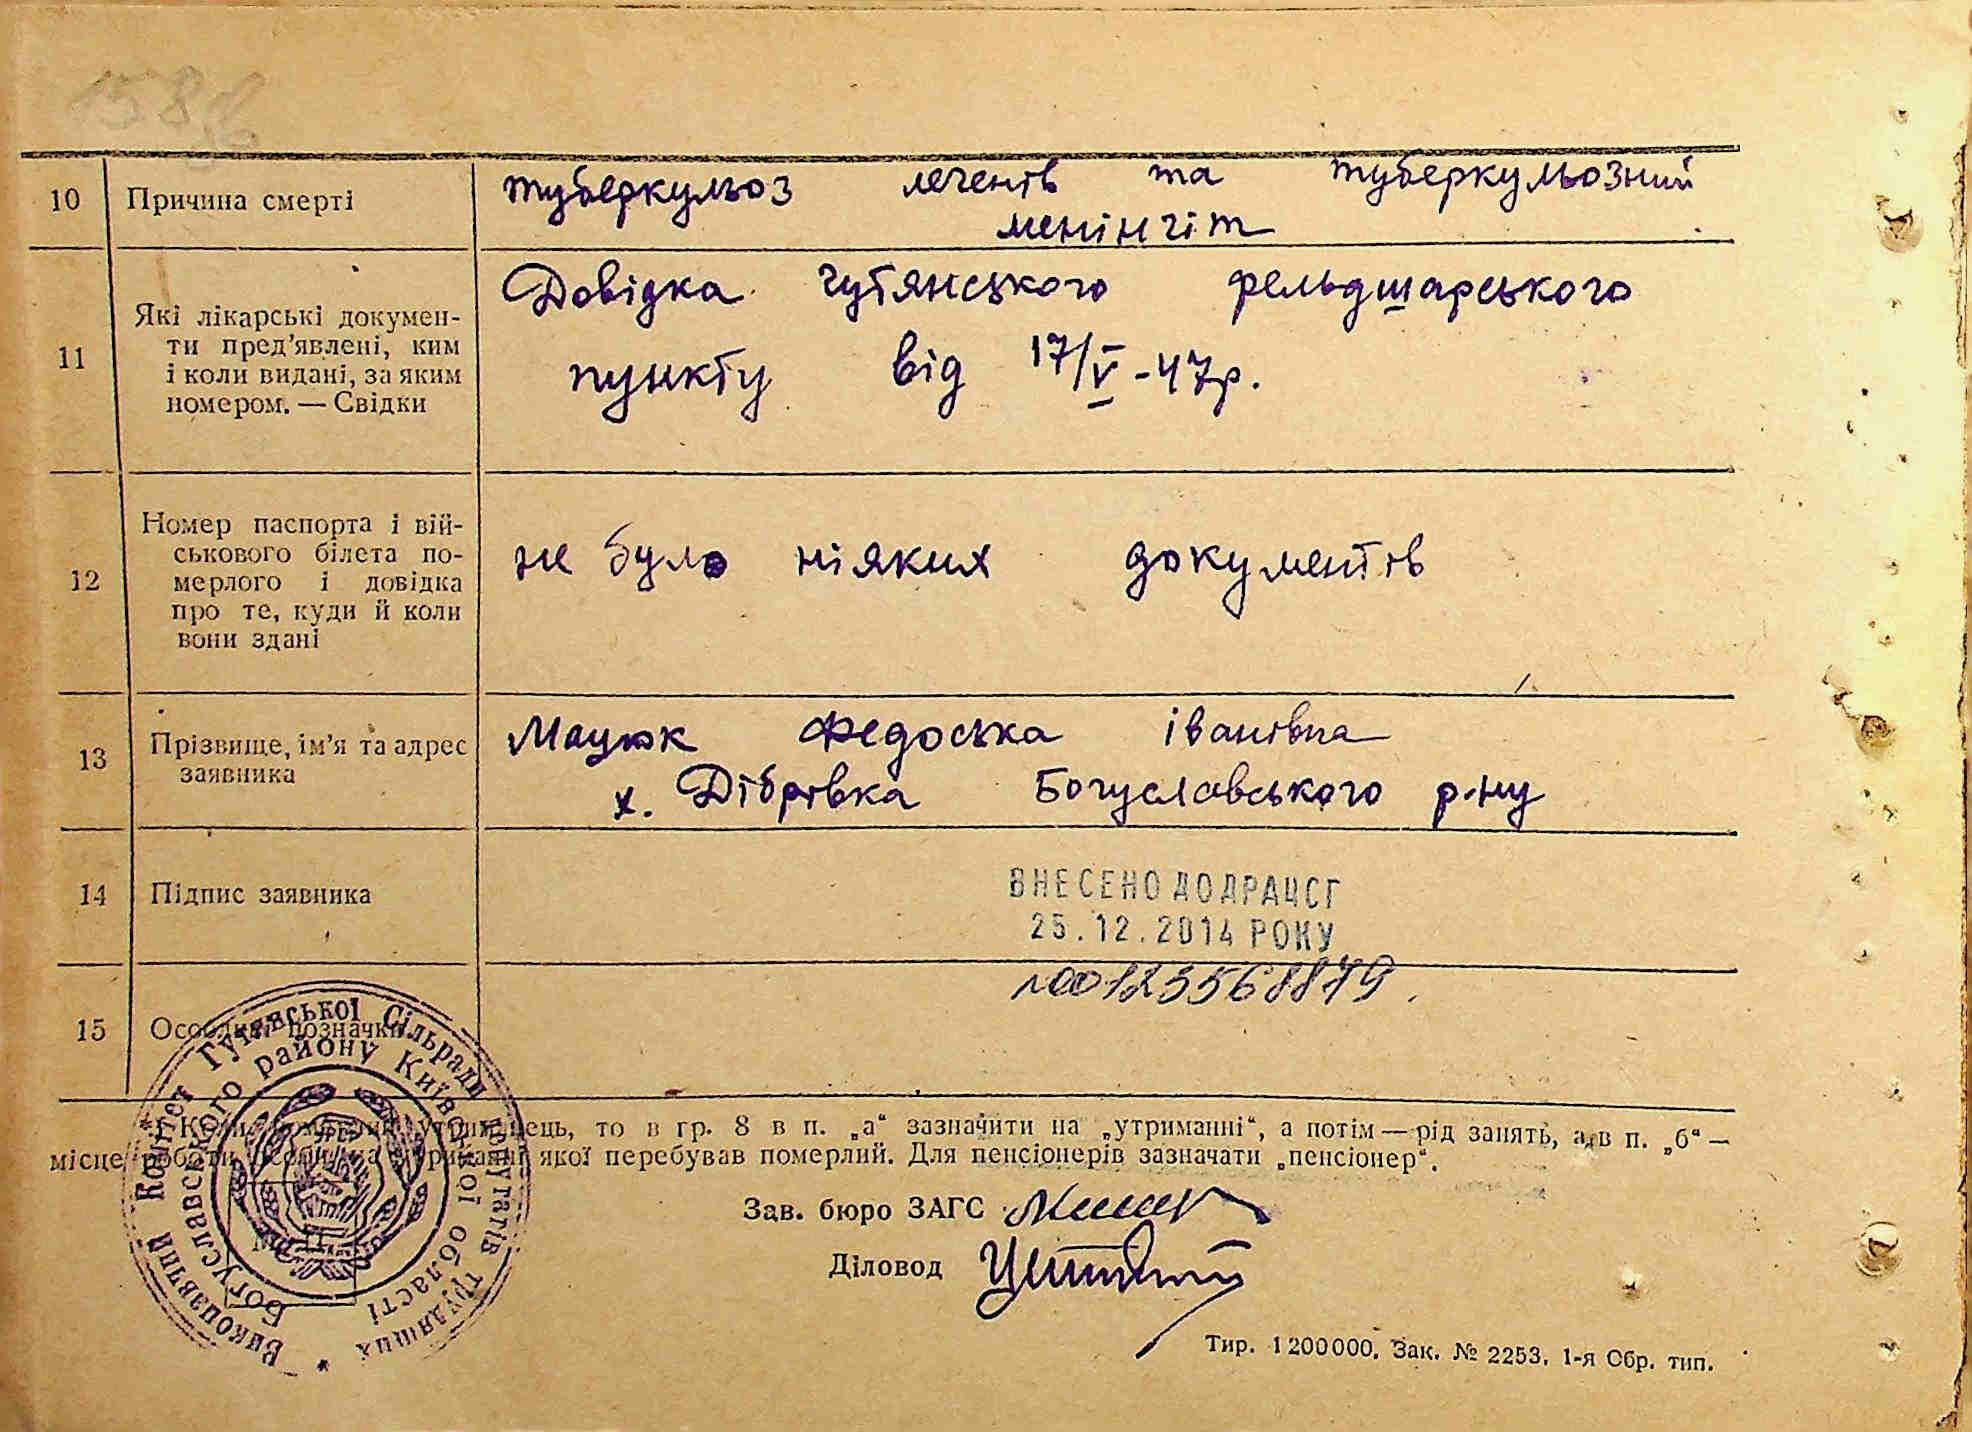 158
10 Причина смерті туберкульоз легенів та туберкульозний
менінгіт
11 Які лікарські докумен-
ти пред’явлені, ким
і коли видані, за яким
номером. — Свідки
Довідка Гутянського фельдшарського
пункту від 17/V-47р.
12 Номер паспорта і вій-
ськового білета по-
мерлого і довідка
про те, куди й коли
вони здані
не було ніяких документів
13 Прізвище, ім’я та адрес
заявника
Мацюк Федоська Іванівна
х. Дібрівка Богуславського р-ну
14 Підпис заявника
ВНЕСЕНО ДО ДРАЦСГ
25.12.2014 РОКУ
№00123568879
15 Особливі позначки
Виконавчий Комітет Гутянської Сільради депутатів трудящих *
Богуславського району Київської області
УРСР
* Коли померлий утриманець, то в гр. 8 в п. „а“ зазначити на „утриманні“, а потім — рід занять, а в п. „б“ —
місце роботи особи, на утриманні якої перебував померлий. Для пенсіонерів зазначати „пенсіонер“.
М. П.
Зав. бюро ЗАГС
Діловод
Тир. 1200000. Зак. № 2253. 1-я Обр. тип.